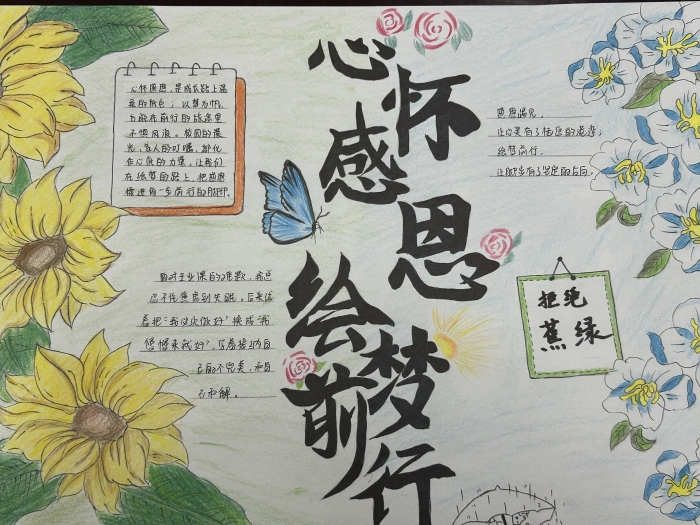 心怀感恩
绘梦前行
心怀感恩，是成长路上温
暖的底色；以梦为帆，
方能在前行的旅途里
不惧风浪。校园的晨
光，家人的叮嘱，都化
作心底的力量，让我们
在绘梦的路上，把感恩
揉进每一步前行的
感恩遇见，
让心灵有了栖息的港湾；
绘梦前行，
让脚步有了坚定的方向。
面对专业课的难题，我总
忍不住焦虑到失眠。后来试
着把“我必须做好”换成“我
慢慢来就好”，写着接纳自
己的不完美，和自
己和解。
拒绝
蕉绿